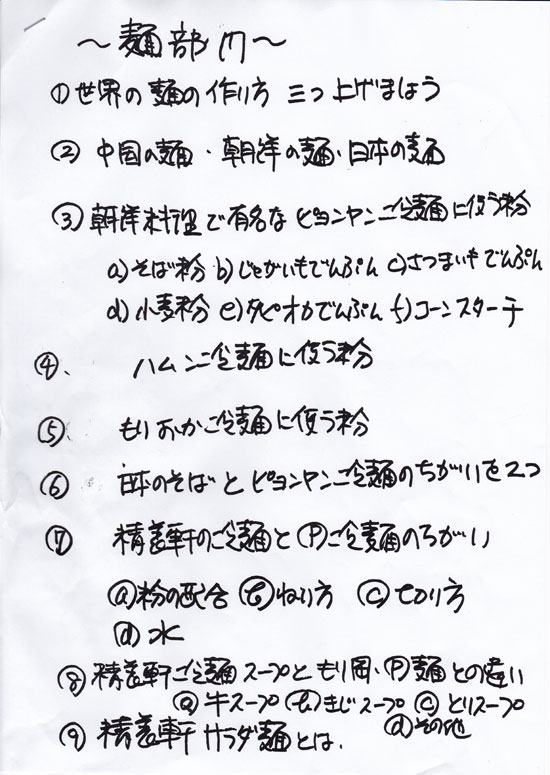 〜麺部門〜
①世界の麺の作り方 三つ上げましょう
② 中国の麺・朝鮮の麺・日本の麺
③ 朝鮮料理で有名なピョンヤン冷麺に使う粉
a)そば粉 b)じゃがいもでんぷん c)さつまいもでんぷん
d)小麦粉 e)タピオカでんぷん f)コーンスターチ
④、 ハムン冷麺に使う粉
⑤ もりおか冷麺に使う粉
⑥ 日本のそばとピョンヤン冷麺のちがいを2つ
⑦ 精養軒の冷麺とⓅ冷麺のちがい
ⓐ粉の配合 ⓑねり方 ⓒ切り方
ⓓ水
⑧精養軒冷麺スープともり岡・Ⓟ麺との違い
ⓐ牛スープ ⓑきじスープ ⓒとりスープ
ⓓその他
⑨ 精養軒サラダ麺とは、